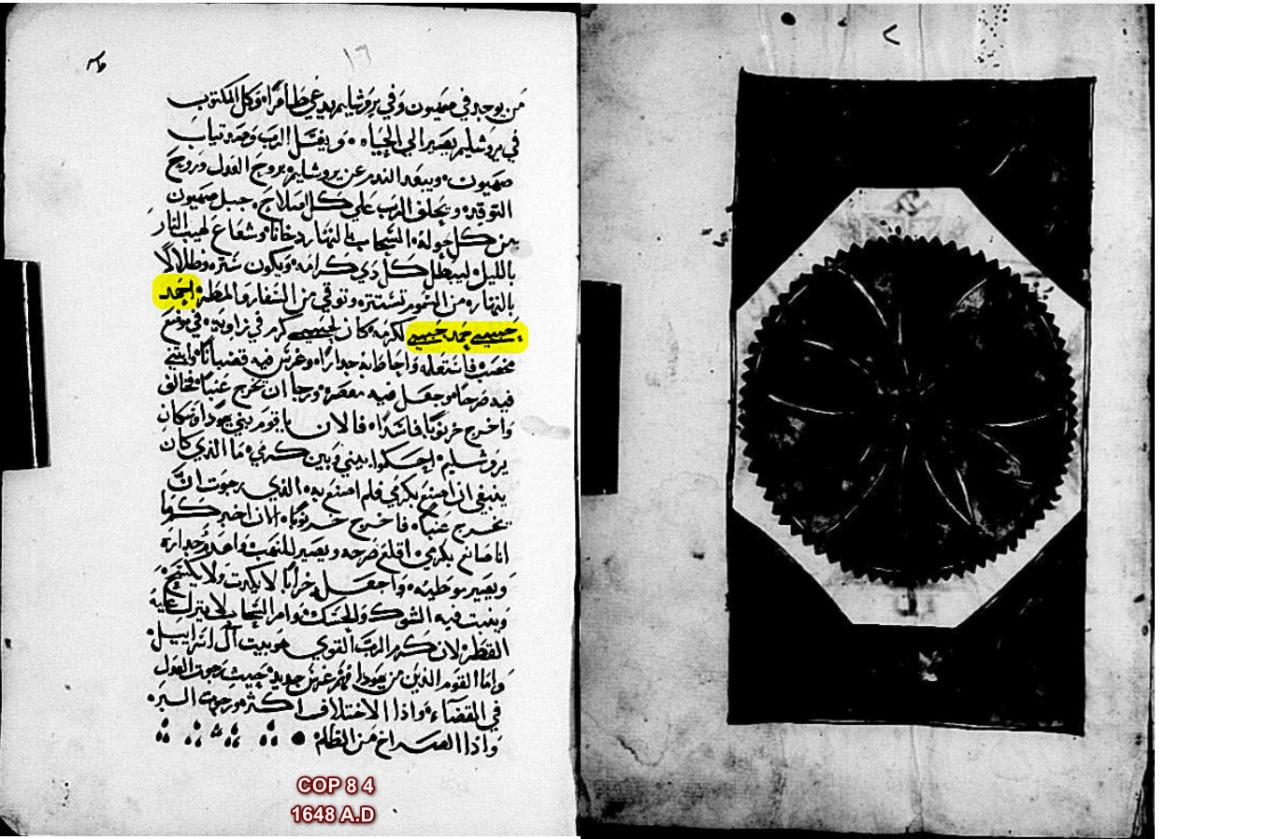 ١٦
من يوجد في صهيون وفي يروشليم يدعي طاهرًا وكل المكتوب
في يروشليم يصير الي الحياه ٠ ويغسل الرب وضر بنات
صهيون ٠ ويبعد الدم عن يروشليم بروح العدل وروح
التوقيد ويخلق الرب علي كل اصلاح ٠ جبل صهيون
من كل حوله السحاب في النهار دخانًا وشعاع لهيب النار
بالليل ليظل كل ذي كرامه ويكون ستره وظلالًا
بالنهار من السموم تستتره وتوقي من والمطر احمد
حبيبي حمد حبيبي لكرمه كان لحبيبي كرم في زاويه في موضع
مخصب فاشتغله واحاط به جدارًا وغرس فيه قضبانًا وابتني
فيه صرحًا وجعل فيه معصره ورجا ان يخرج عنبًا فخالف
واخرج خرنوبًا فالان يا قوم بني يهودا وسكان
يروشليم احكموا بيني وبين كرمي ما الذي كان
ينبغي ان اصنع بكرمي فلم اصنع به الذي رجوت ان
يخرج عنبًا فاخرج خرنوبًا الان اخبركم ما
انا صانع بكرمي اقلع صرحه ويصير للنهب واهدم جداره
ويصير موطيه واجعل خرابًا لا يكرب ولا يكسح
وينبت فيه الشوك والحسك وامر السحاب لا ينزل عليه
القطر لان كرم الرب القوي هو بيت آل اسراييل
واما القوم الذين من يهودا فهم غرس جديد حبيب رجوت العدل
في القضاء واذا الاختلاف اكثر ورجوت البر
واذا الصراخ من الظلم
COP 8 4
1648 A.D